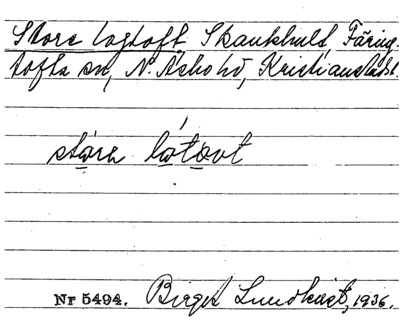 Store Logtoft, Skankhult, Färing-
tofta sn, N. Åsbo hd, Kristianstads l.
stóra lótovt
Nr 5494. Birgit Lundkvist, 1936.